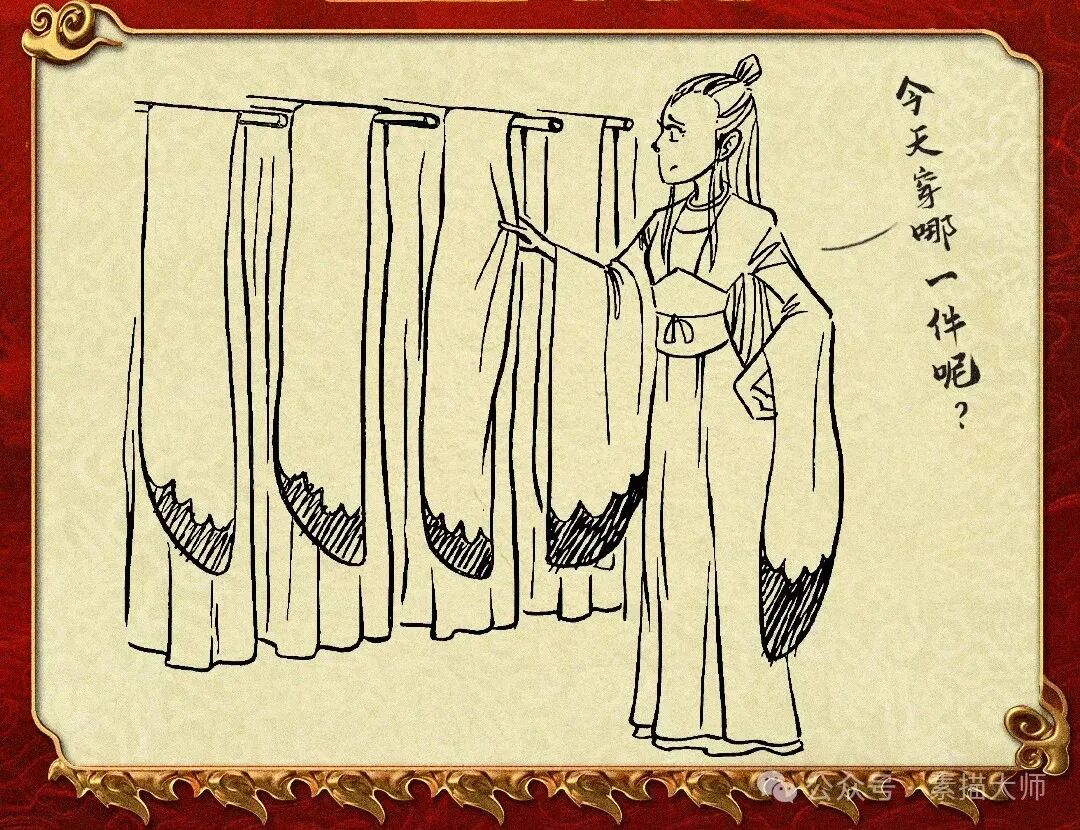 今天穿哪一件呢？
公众号 · 素描大师